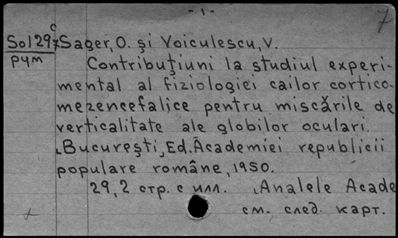 - 1 -
7
c
Sol29 7 Sager, O. şi Voiculescu, V.
рум
Contribuţiuni la studiul experi-
mental al fiziologiei cailor cortico-
mezencefalice pentru miscările de
verticalitate ale globilor oculari.
Bucureşti, Ed. Academiei republicii
populare române, 1950.
29,2 стр. с илл. Analele Acade
см. след. карт.